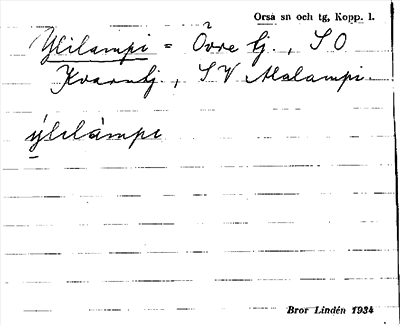 Orsa sn och tg, Kopp. l.
Ylilampi = Övre tj., SO
Kvarntj., SV Alalampi.
ýlilàmpi
Bror Lindén 1934